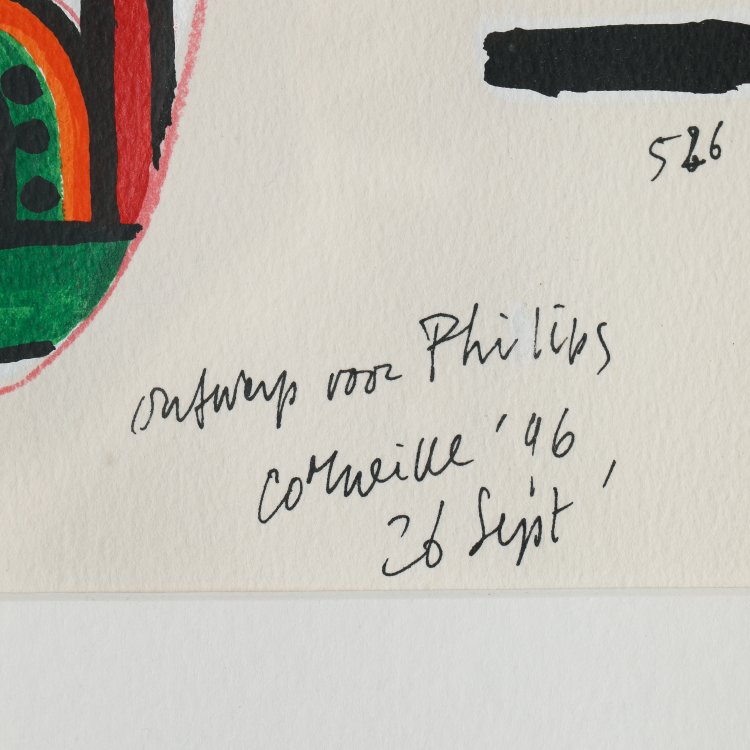 526
ontwerp voor Philips
Corneille '96
26 Sept'